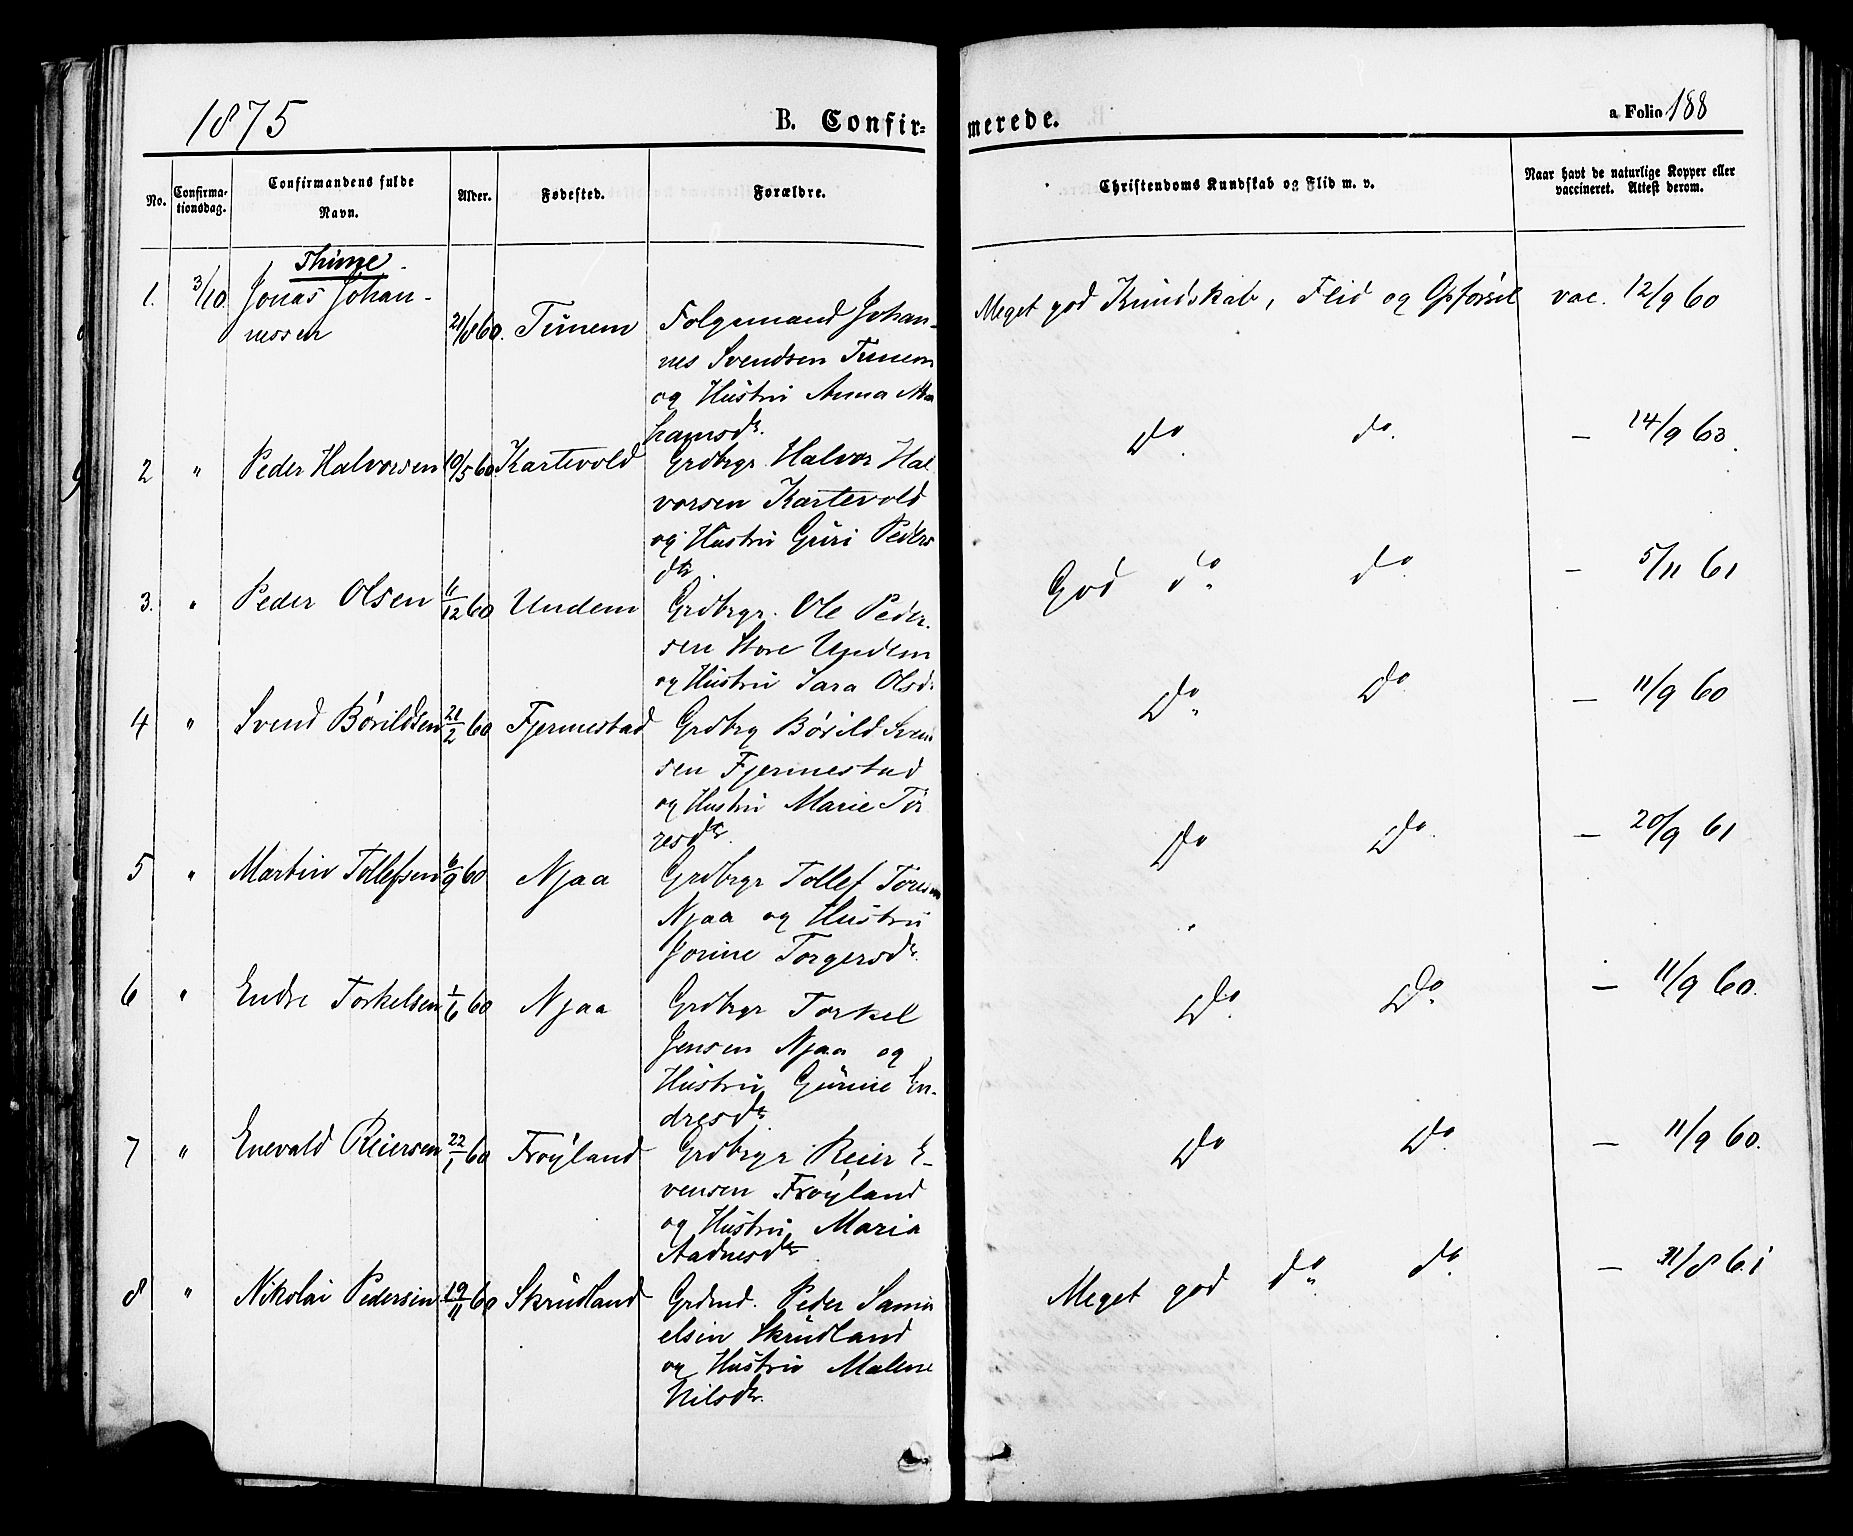 1875
B. Confir-
merede.
a Folio 188
No.
Confirma-
tionsdag.
Confirmandens fulde
Navn.
Alder.
Fødested.
Forældre.
Christendoms Kundskab og Flid m. v.
Naar havt de naturlige Kopper eller
vaccineret. Attest derom.
Thime
1. 3/10. Jonas Johan-
nessen
21/8 60. Tunem
Folgemand Johan-
nes Svendsen Tunem
og Hustru Anna
hansdr.
Meget god Kundskab, Flid og Opførsel
vac. 12/9 60
2 " Peder Halvorsen 10/5 60. Kartevold
Grdbrgr. Halvor Hal
vorsen Kartevold
og Hustru Guri Peders
dtr.
do. do. — 14/9 60.
3. " Peder Olsen 11/12 60 Undem
Grdbrgr. Ole Peder-
sen Store Undem
og Hustru Sara Olsd.
God do. do. — 5/11 61
4 " Svend Bórildsen 21/2 60 Fjermestad
Grdbrg Bórild Sven
sen Fjermestad
og Hustru Marie To
resdr.
Do. Do. — 11/9 60
5 " Martin Tollefsen 6/9 60 Njaa
Grdbrgr Tollef Toresen
Njaa og Hustru
Jorine Torgersdr.
Do Do. — 20/9 61
6 " Endre Torkelsen 1/6 60 Njaa
Grdbrgr Torkel
Jensen Njaa og
Hustru Gurine En-
dresdr.
Do. Do. — 11/9 60.
7 " Enevald Reiersen 22/1 60 Frøyland
Grdbrgr Reier E-
vensen Frøyland
og Hustru Maria
Aadnesdr.
Do Do. — 11/9 60.
8 " Nikolai Pedersen. 19/11 60 Skrudland
Grdmd. Peder Samu
elsen Skrudland
og Hustru Malene
Nilsdr.
Meget god do. do. — 31/8 61